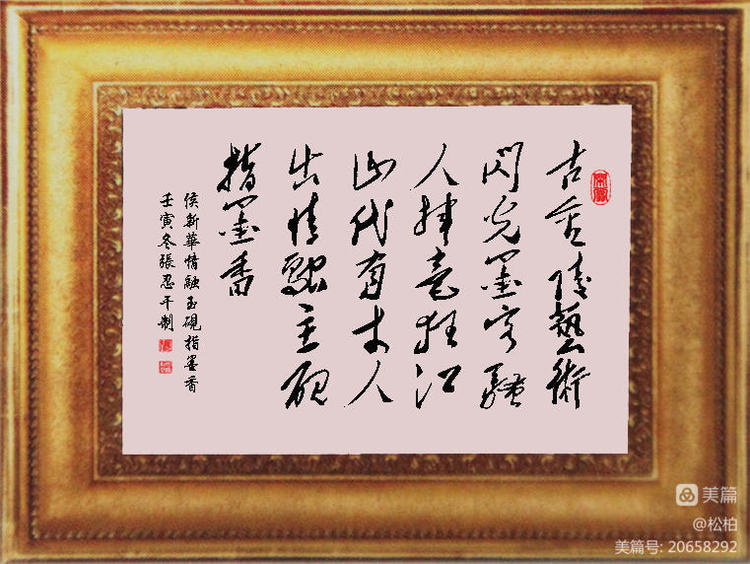 古金陵藝術
闪光墨客骚
人挥毫狂江
山代有才人
出情融玉砚
指墨香
侯新華情融玉硯指墨香
壬寅冬張忍制
美篇
@松柏
美篇号: 20658292